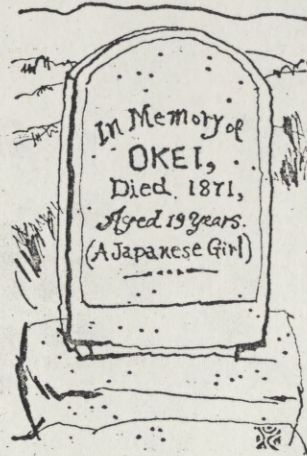 In Memory of
OKEI,
Died. 1871,
Aged 19 Years.
(A Japanese Girl)